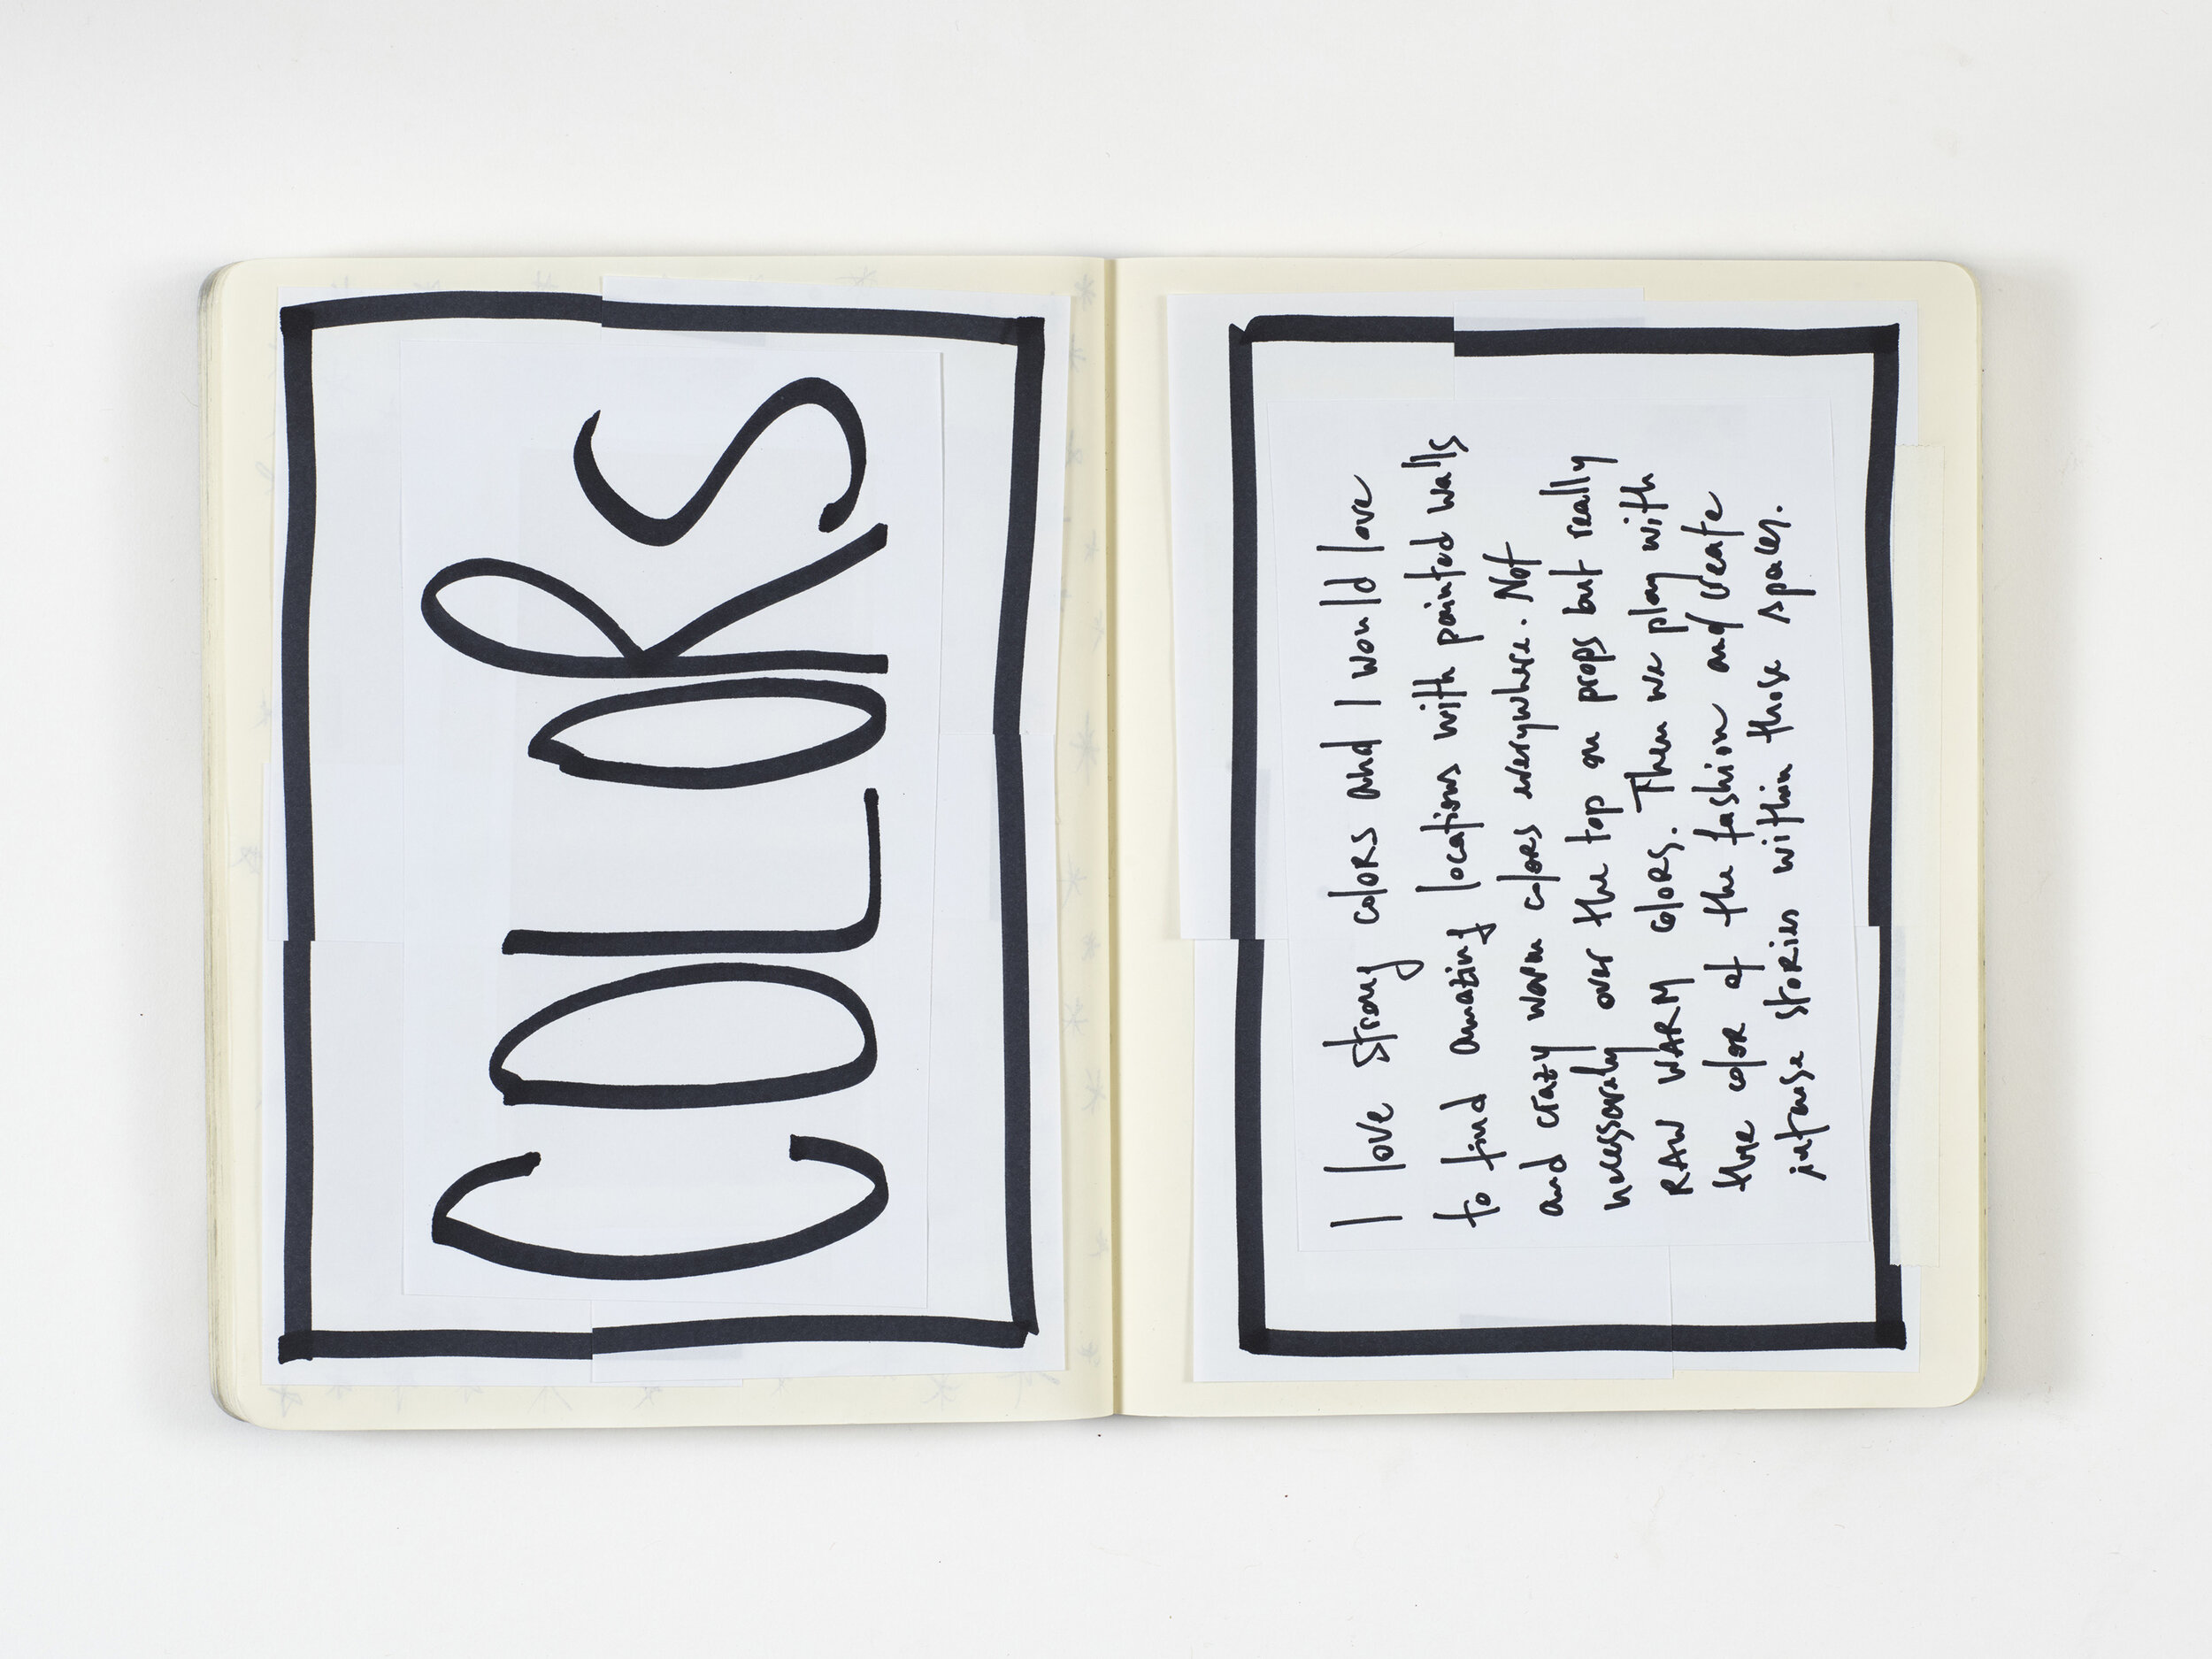 COLORS
I love strong colors and I would love
to find amazing locations with painted walls
and crazy warm colors everywhere. Not
necessarily over the top on props but really
RAW WARM colors. Then we play with
the color of the fashion and create
intense stories within those spaces.